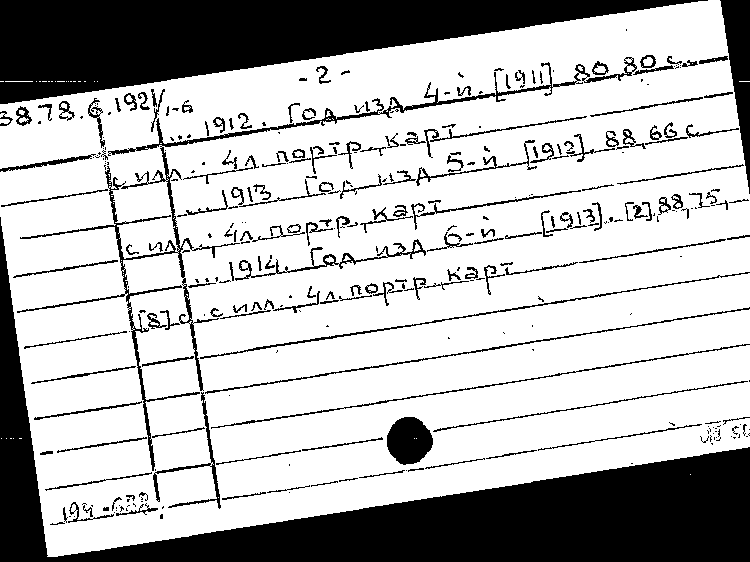 - 2 -
38.78.6.192/1-6
... 1912. Год изд 4-й. [1911] 80,80 с.
с илл.; 4л. портр., карт.
... 1913. Год изд 5-й. [1912]. 88,66 с
с илл.; 4л. портр., карт
... 1914. Год изд 6-й. [1913]. [2],88,75,
[8] с. с илл.; 4л. портр., карт
194-688